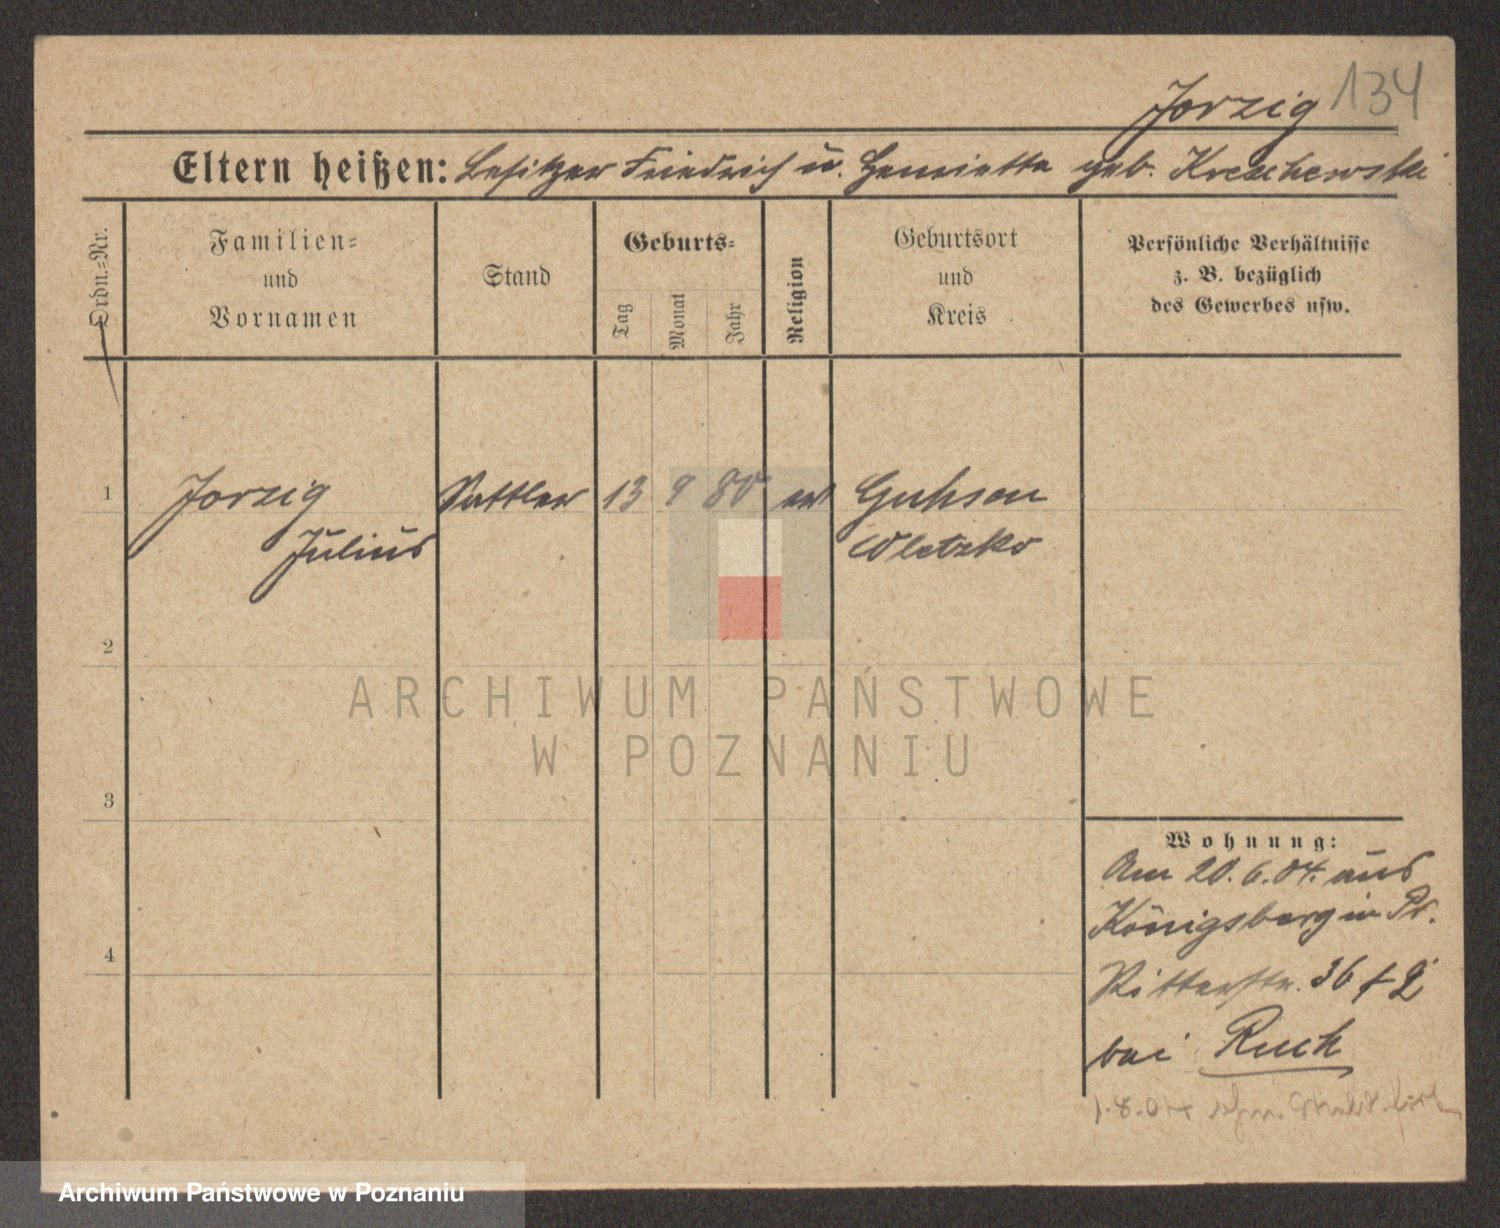 Jorzig 134
Eltern heißen: Besitzer Friedrich u. Henriette geb. Kreschewski
Ordn.-Nr.
Familien-
und
Vornamen
Stand
Geburts-
Tag
Monat
Jahr
Religion
Geburtsort
und
Kreis
Persönliche Verhältnisse
z. B. bezüglich
des Gewerbes usw.
1 Jorzig Sattler 13 9 80 ev Guhsen
Julius Oletzko
2
3
4
Wohnung:
Am 20.6.04. aus
Königsberg in Pr.
Ritterstr. 36
bei Ruch
1.8.04
ARCHIWUM PAŃSTWOWE
W POZNANIU
Archiwum Państwowe w Poznaniu